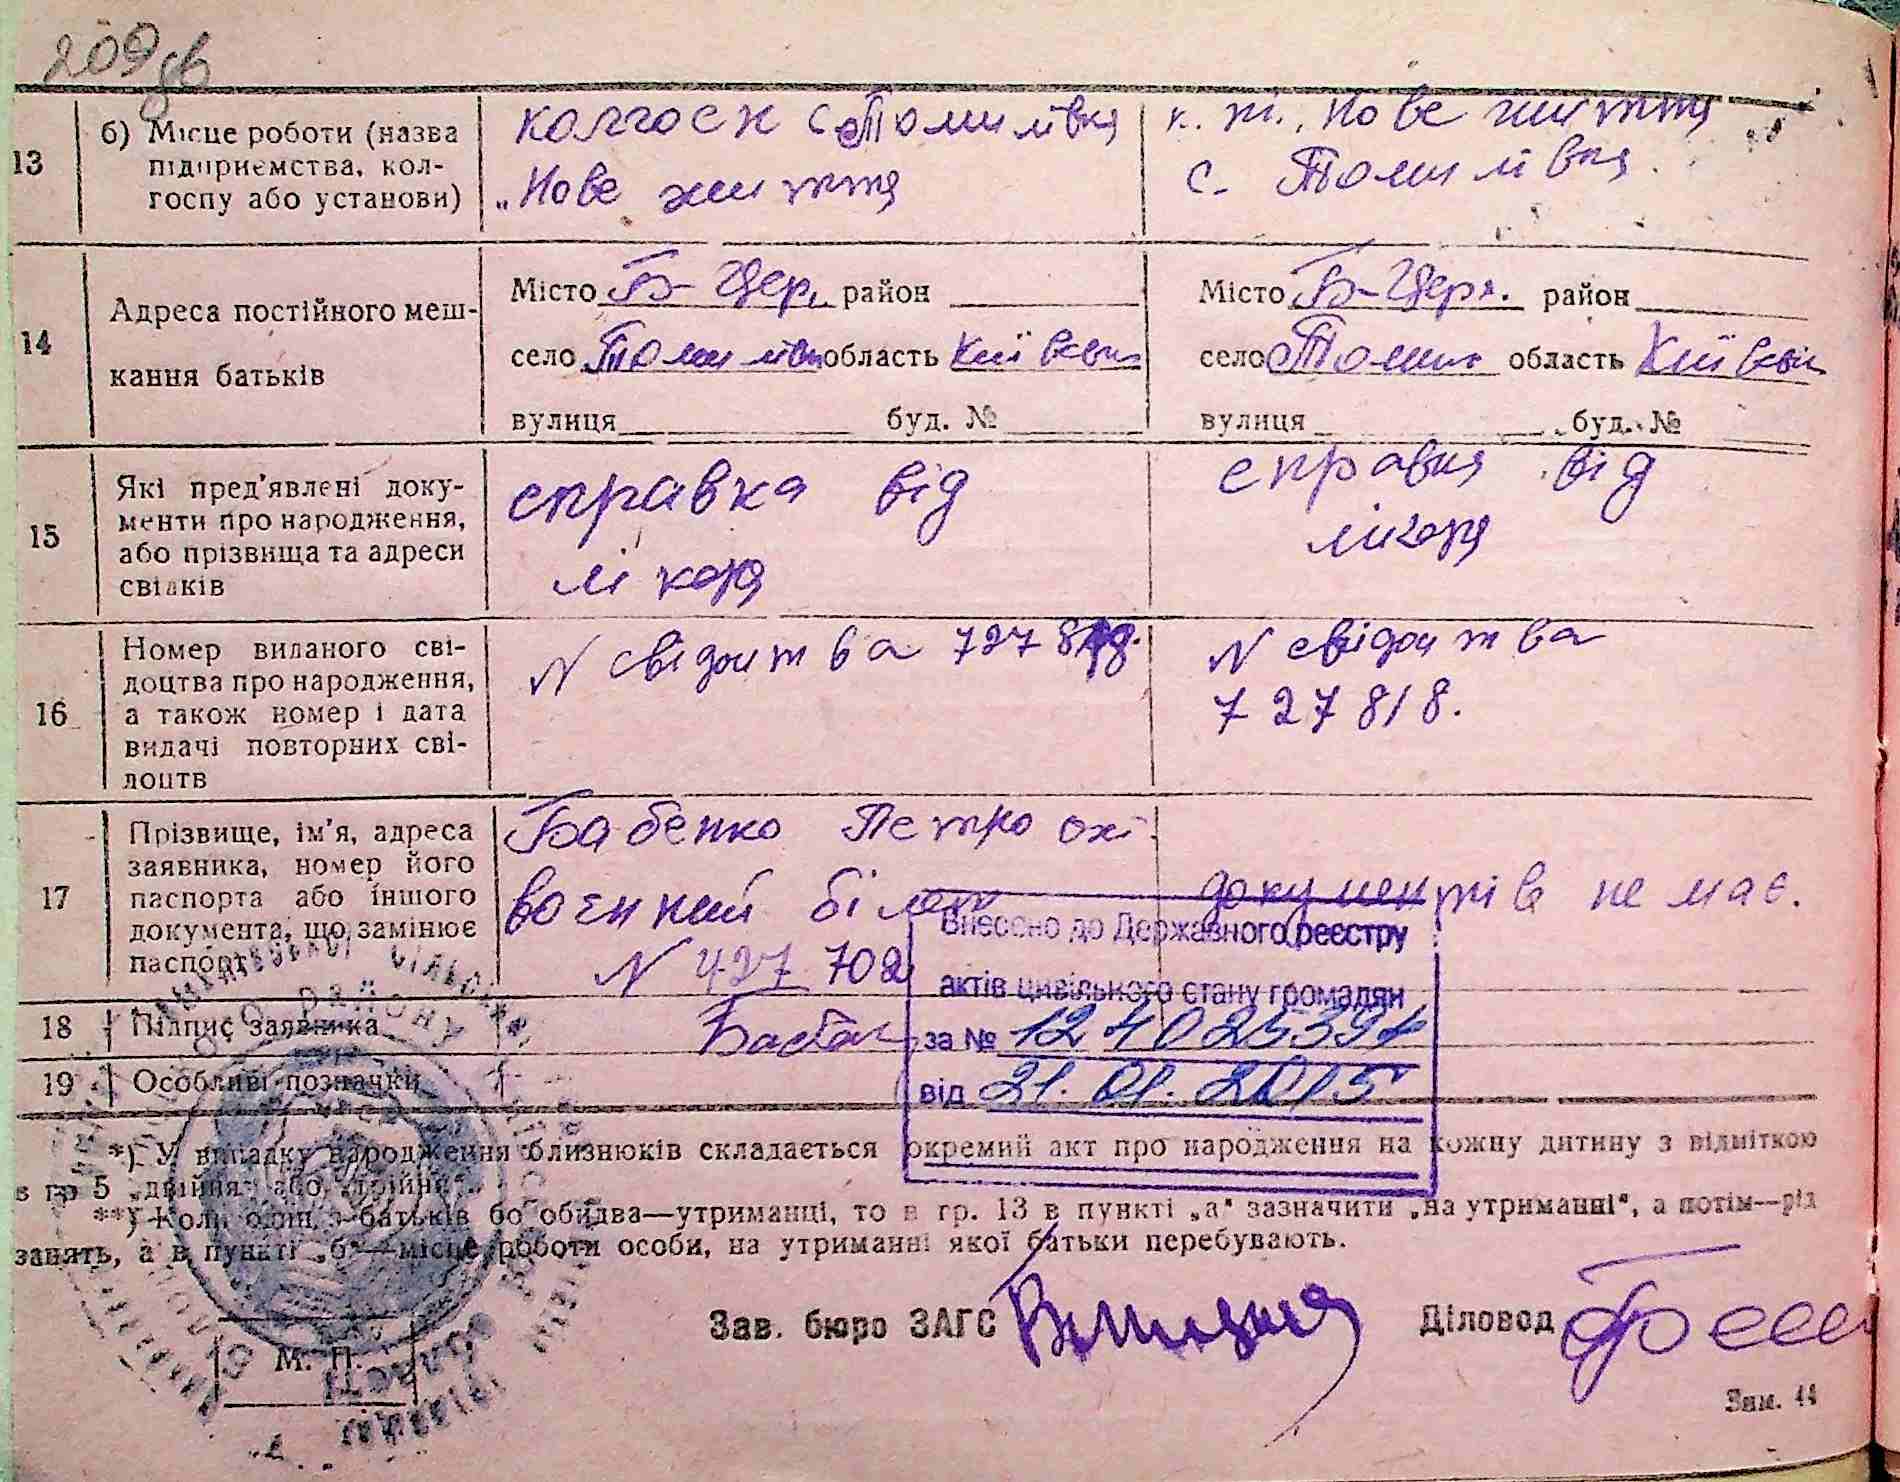 209 зв
13 б) Місце роботи (назва підприємства, колгоспу або установи)
колгосп с Томилівка
„Нове життя
к. п., Нове життя
с. Томилівка.
14 Адреса постійного мешкання батьків
Місто Б-Церк. район
село Томилівка область Київськ
вулиця буд. №
Місто Б-Церк. район
село Томил область Київськ
вулиця буд. №
15 Які пред'явлені документи про народження, або прізвища та адреси свідків
справка від
лікаря
справка від
лікаря
16 Номер виданого свідоцтва про народження, а також номер і дата видачі повторних свідоцтв
N свідоитва 7278
N свідоитва
727818.
17 Прізвище, ім'я, адреса заявника, номер його паспорта або іншого документа, що замінює паспорт
Бабенко Петро
воєнний білет
N 427 702
документів немає.
18 Підпис заявника
19 Особливі позначки
Внесено до Державного реєстру
актів цивільного стану громадян
за №
від 21.01.2015
*) У випадку народження близнюків складається окремий акт про народження на кожну дитину з відміткою
в гр 5 „двійня" або „трійня".
**) Коли один з батьків бо обидва—утриманці, то в гр. 13 в пункті „а" зазначити „на утриманні", а потім—рід
занять, а в пункті „б"—місце роботи особи, на утриманні якої батьки перебувають.
Зав. бюро ЗАГС
Діловод
М. П.
Зам. 44